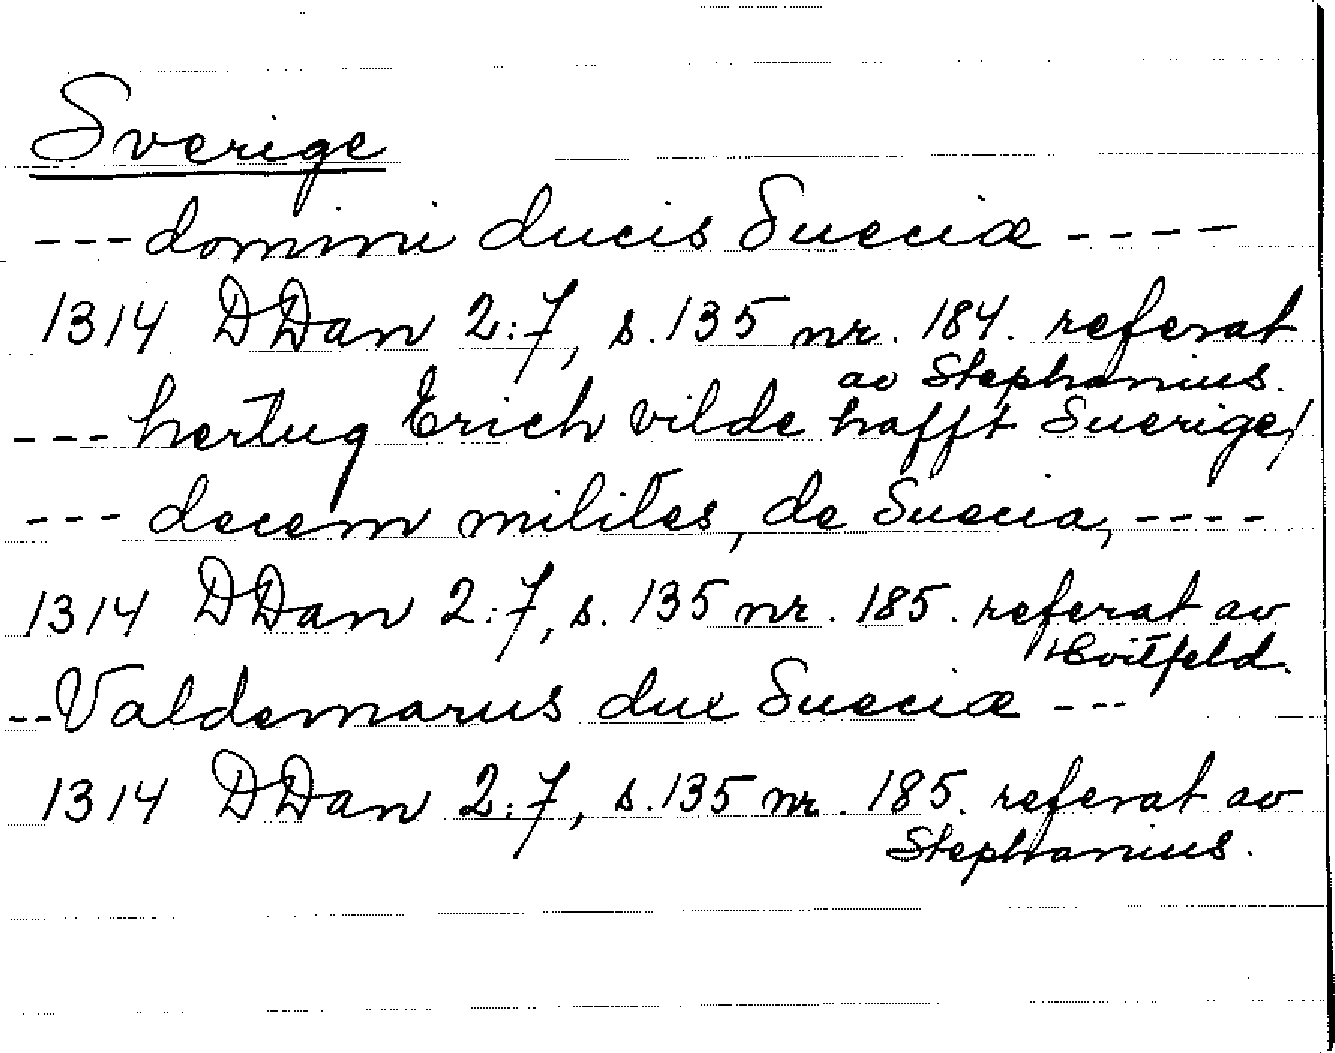 Sverige
---domini ducis Sueciæ----
1314 DDan 2:7, s.135 nr. 184. referat
av Stephanius.
---hertug Erich vilde hafft Suerige/
---decem milites, de Suecia,----
1314 DDan 2:7, s. 135 nr. 185. referat av
Hvitfeld.
--Valdemarus dux Sueciæ---
1314 DDan 2:7, s.135 nr. 185. referat av
Stephanius.